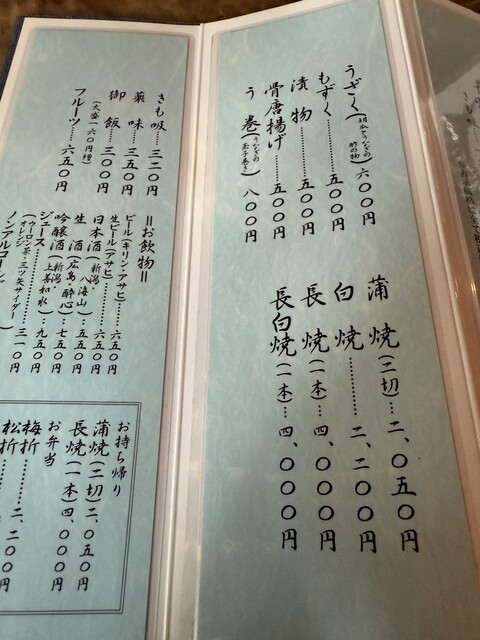 うざく(胡瓜とうなぎの酢の物)六〇〇円
もずく……五〇〇円
漬物……五〇〇円
骨唐揚げ……五〇〇円
う巻(うなぎの玉子巻き)八〇〇円
蒲焼(二切)…二、〇五〇円
白焼…………二、二〇〇円
長焼(一本)…四、〇〇〇円
長白焼(一本)…四、〇〇〇円
きも吸…三二〇円
薬味…三五〇円
御飯…三〇〇円
(大盛一六〇円増)
フルーツ……六五〇円
=お飲物=
ビール(キリン・アサヒ)…六五〇円
生ビール(アサヒ)……六五〇円
日本酒(新潟・八海山)……六五〇円
生酒(広島・酔心)……五五〇円
吟醸酒(新潟・上善如水)…七五〇円
ジュース…………九五〇円
(ウーロン茶・三ツ矢サイダー・オレンジ)…三一〇円
ノンアルコール
お持ち帰り
蒲焼(二切)二、〇五〇円
長焼(一本)四、〇〇〇円
お弁当
梅折……二、二〇〇円
松折